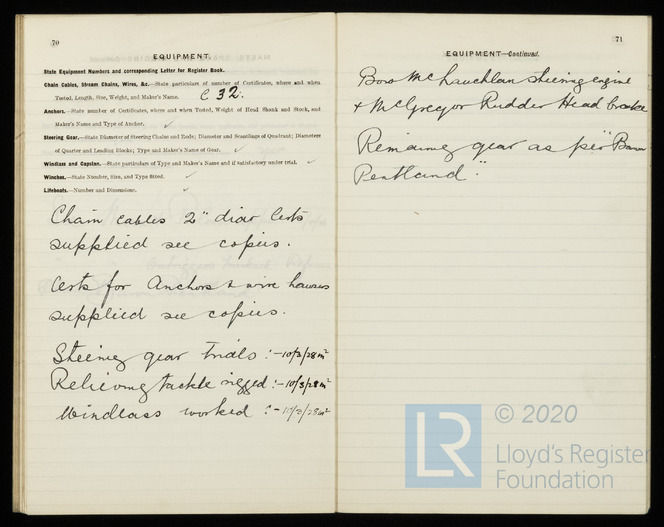 70
EQUIPMENT.
State Equipment Numbers and corresponding Letter for Register Book.
Chain Cables, Stream Chains, Wires, &c.—State particulars of number of Certificates, where and when
Tested, Length, Size, Weight, and Maker's Name. C 32.
Anchors.—State number of Certificates, where and when Tested, Weight of Head Shank and Stock, and
Maker's Name and Type of Anchor. ✓
Steering Gear.—State Diameter of Steering Chains and Rods; Diameter and Scantlings of Quadrant; Diameters
of Quarter and Leading Blocks; Type and Maker's Name of Gear. ✓
Windlass and Capstan.—State particulars of Type and Maker's Name and if satisfactory under trial. ✓
Winches.—State Number, Size, and Type fitted. ✓
Lifeboats.—Number and Dimensions. ✓
Chain cables 2" diar Certs
supplied see copies.
Certs for Anchors & wire hawsers
supplied see copies.
Steering gear trials :- 10/3/28
Relieving tackle rigged :- 10/3/28
Windlass worked :- 10/3/28
71
EQUIPMENT—Continued.
Bow McLauchlan steering engine
& McGregor Rudder Head brake
Remaining gear as per "Baron
Pentland".
LR
© 2020
Lloyd's Register
Foundation